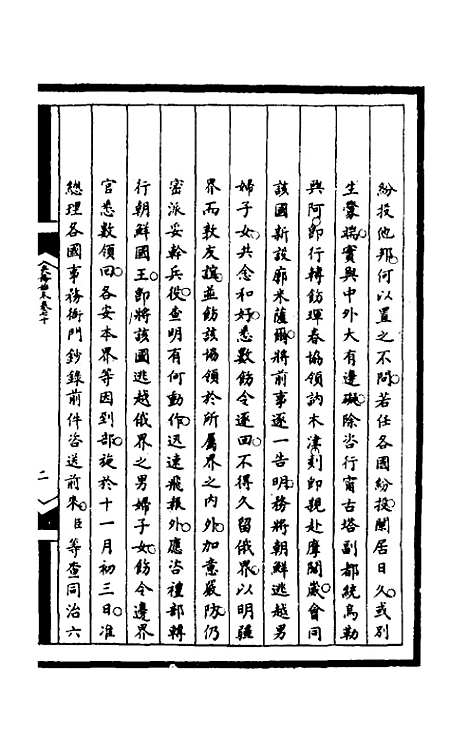 紛投他邦何以置之不問若任各國紛投闌居日久或別
生釁端實與中外大有邊礙除咨行甯古塔副都統烏勒
興阿卽行轉飭琿春協領訥木津刻卽親赴摩闊崴會同
該國新設廓米薩爾將前事逐一告明務將朝鮮逃越男
婦子女共念和好悉數飭令逐回不得久留俄界以明疆
界而敦友誼並飭該協領於所屬界之內外加意嚴防仍
密派妥幹兵役查明有何動作迅速飛報外應咨禮部轉
行朝鮮國王卽將該國逃越俄界之男婦子女飭令邊界
官悉數領回各安本界等因到部旋於十一月初三日准
總理各國事務衙門鈔錄前件咨送前來臣等查同治六
二